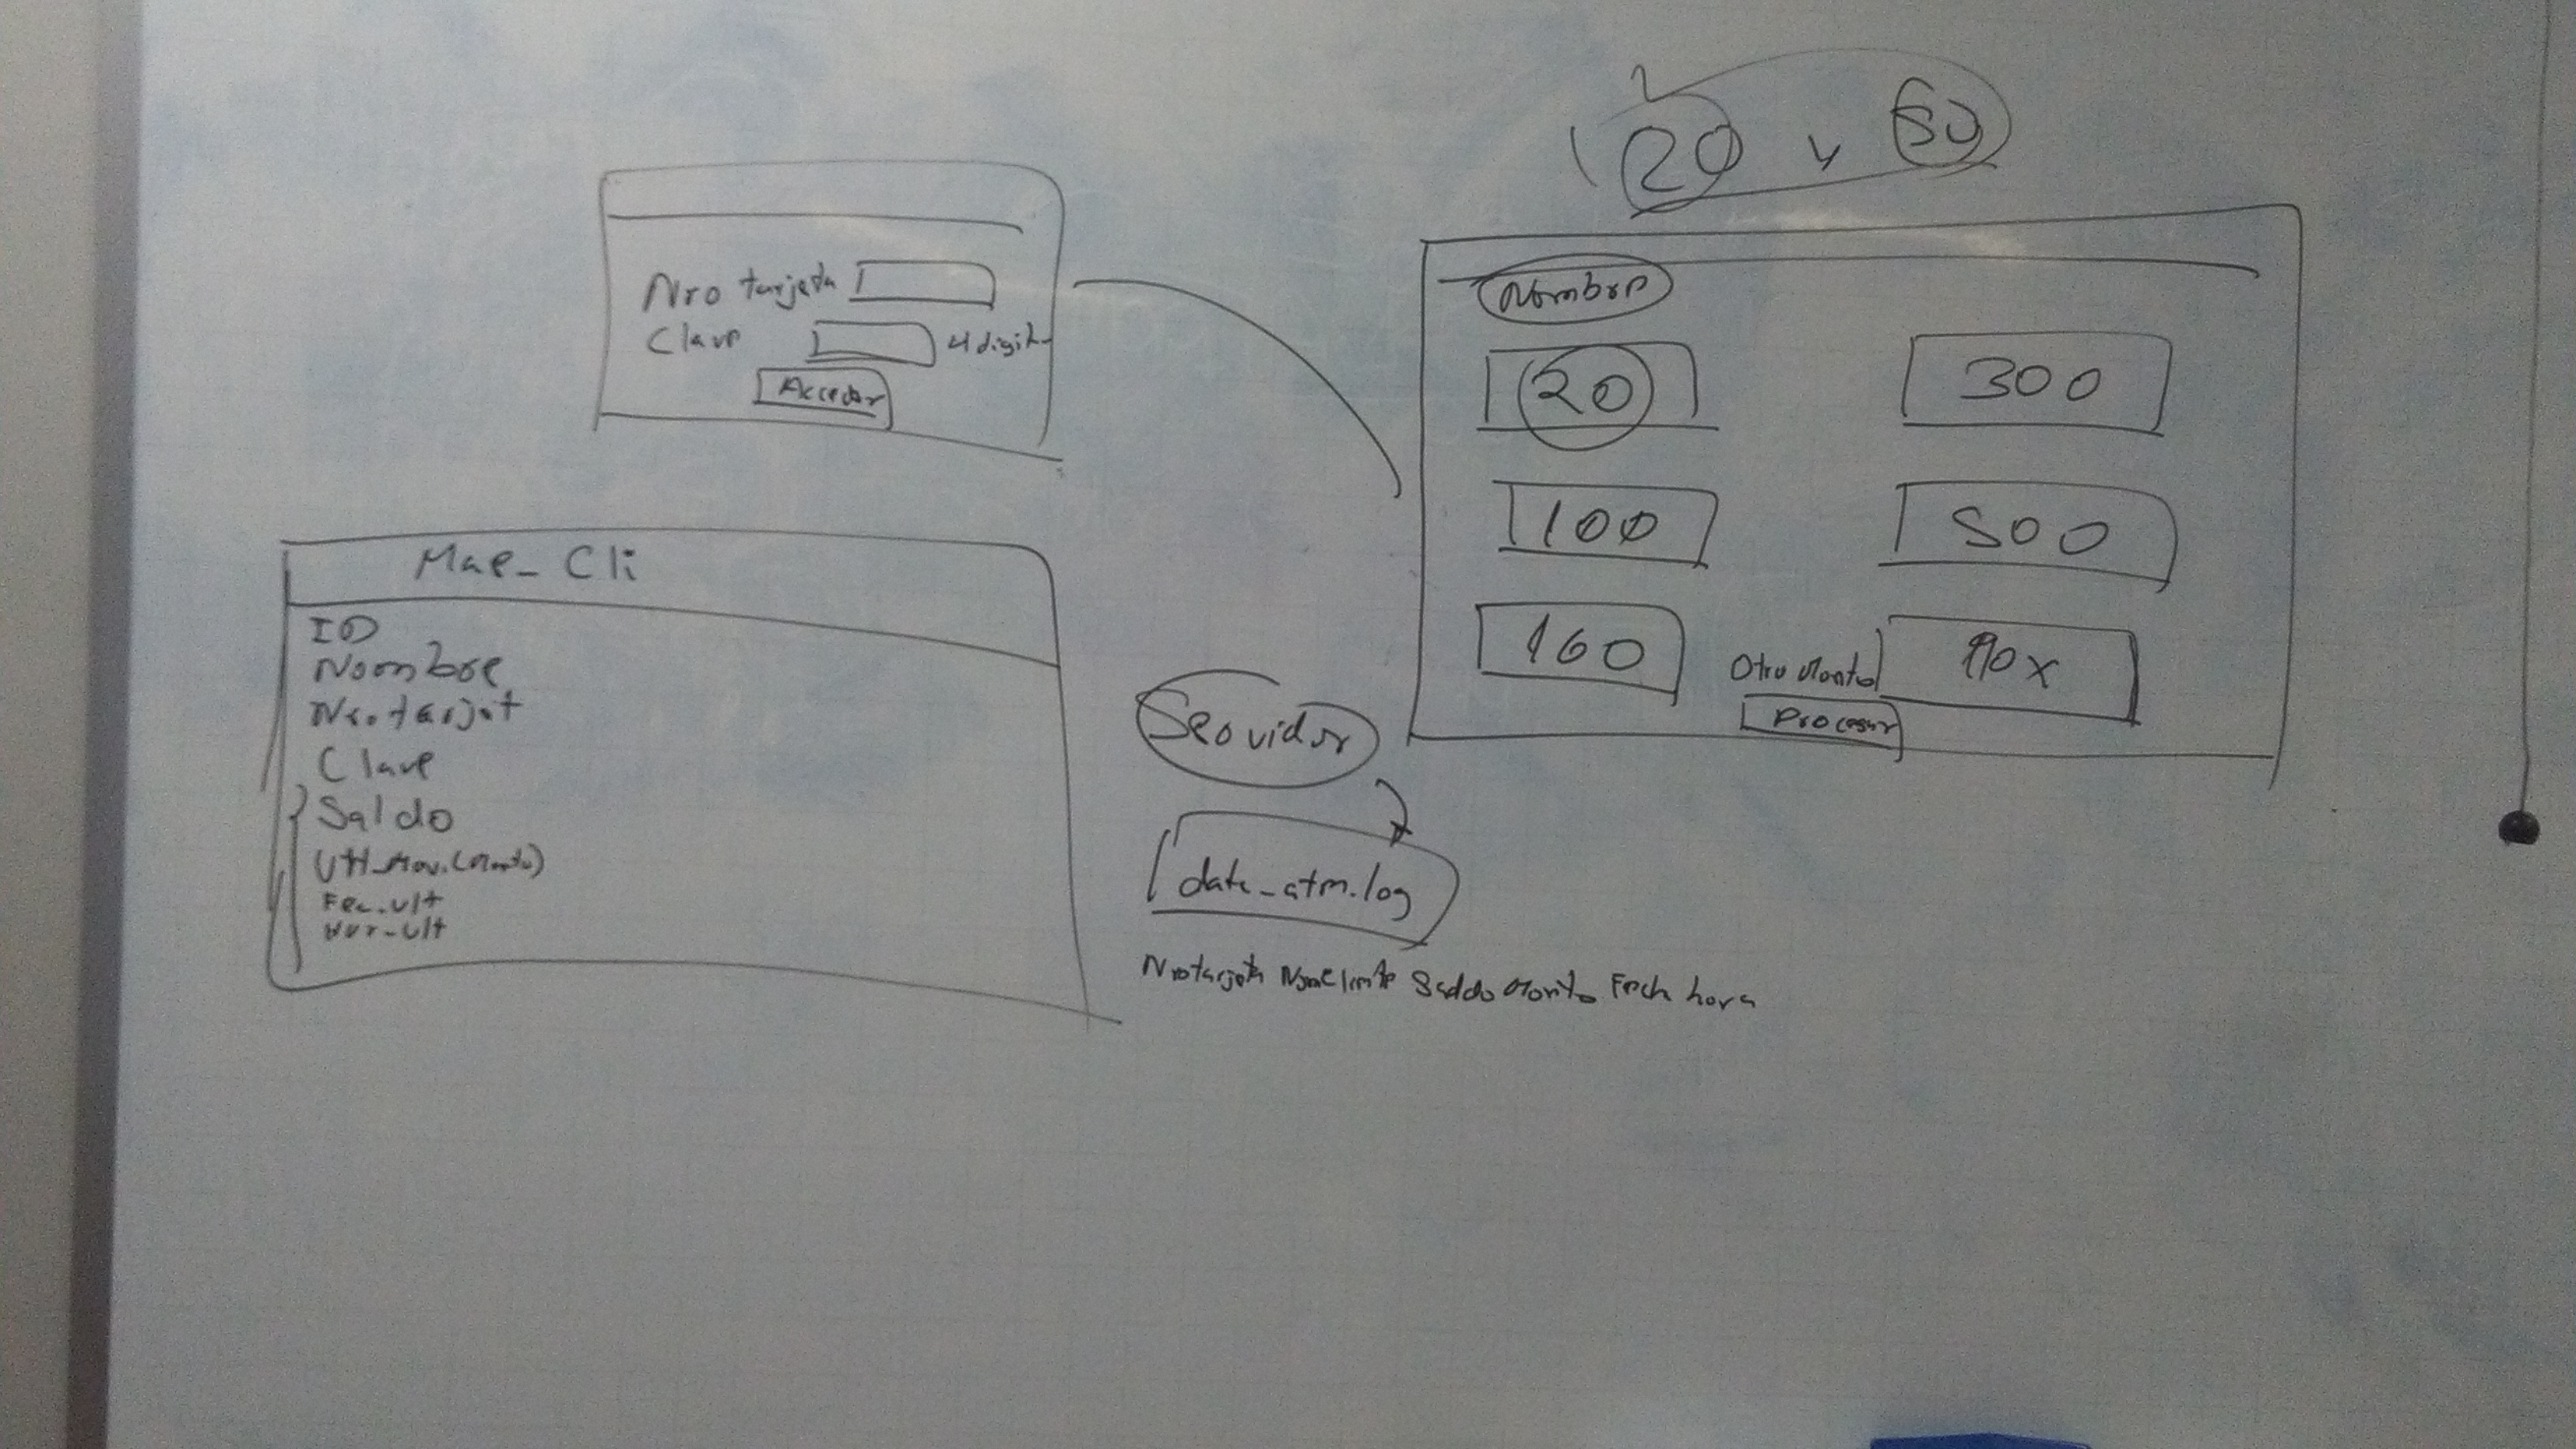 20 y 50
Nro tarjeta
Clave 4 digit
Acceder
Nombre
20 300
100 500
160
Otro Monto
Procesar
Mae_Cli
ID
Nombre
Nro tarjet
Clave
Saldo
Ult_Mov.(Monto)
Fec_ult
Hor_ult
Servidor
date_atm.log
Nrotarjeta Saldo Monto Fech hora